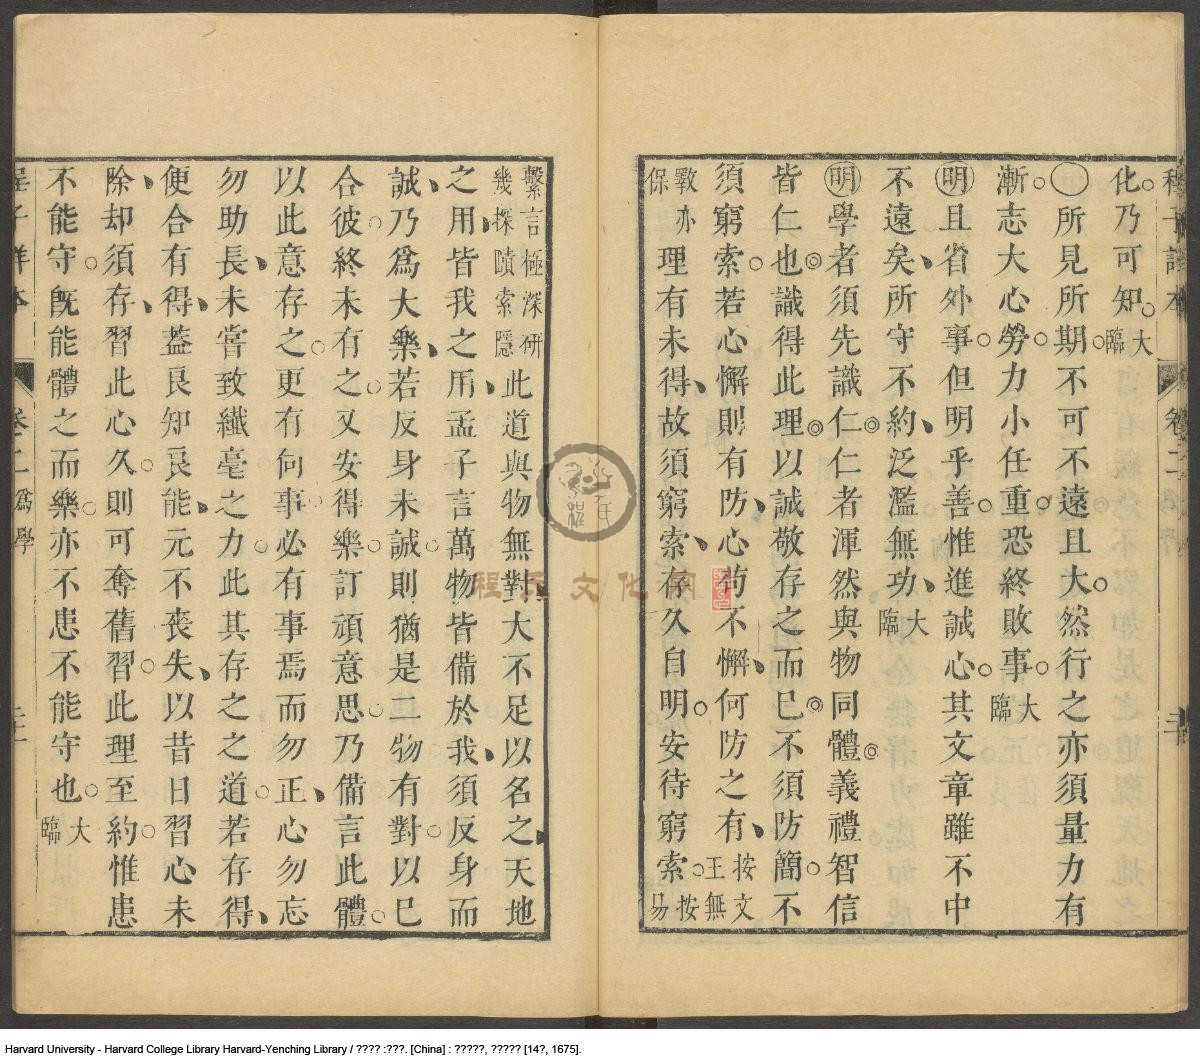 程子詳本 卷二 三十
化乃可知大臨
〇所見所期不可不遠且大然行之亦須量力有
漸志大心勞力小任重恐終敗事大臨
明且省外事但明乎善惟進誠心其文章雖不中
不遠矣所守不約泛濫無功大臨
明學者須先識仁仁者渾然與物同體義禮智信
皆仁也識得此理以誠敬存之而已不須防簡不
須窮索若心懈則有防心苟不懈何防之有按文王無
斁亦保理有未得故須窮索存久自明安待窮索按易
繫言極深研幾探賾索隱此道與物無對大不足以名之天地
之用皆我之用孟子言萬物皆備於我須反身而
誠乃爲大樂若反身未誠則猶是二物有對以已
合彼終未有之又安得樂訂頑意思乃備言此體
以此意存之更有何事必有事焉而勿正心勿忘
勿助長未嘗致纎毫之力此其存之之道若存得
便合有得蓋良知良能元不喪失以昔日習心未
除却須存習此心久則可奪舊習此理至約惟患
不能守旣能體之而樂亦不患不能守也大臨
程子詳本 卷二 爲學 三十一
程氏文化網
Harvard University - Harvard College Library Harvard-Yenching Library / ???? :???. [China] : ?????, ????? [14?, 1675].